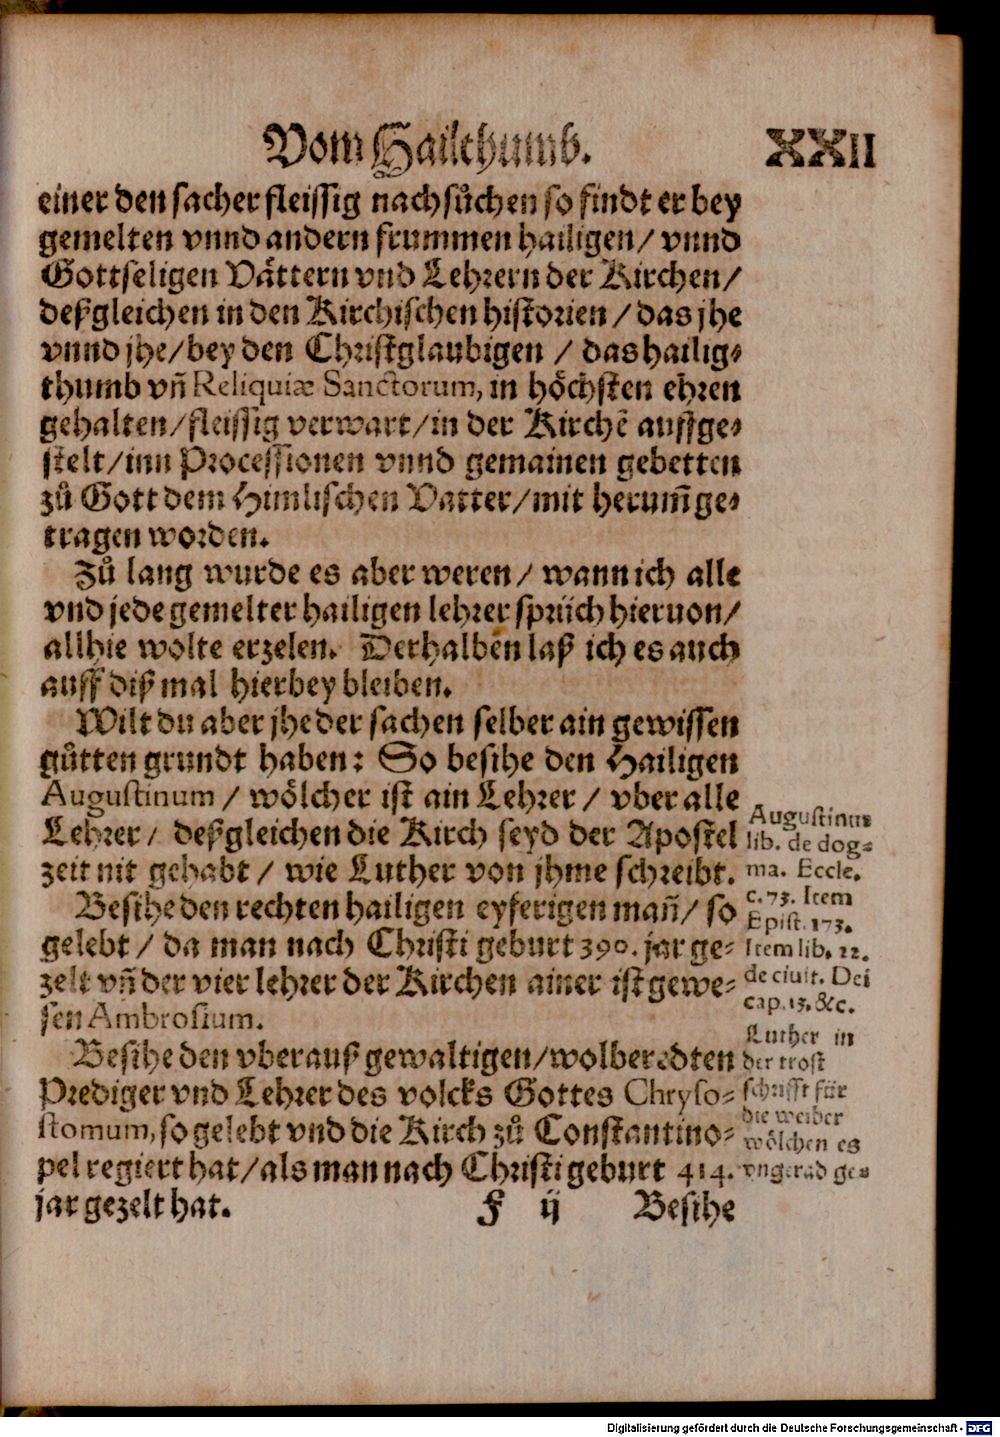 Vom Hailthumb.
XXII
einer den sacher fleissig nachsůchen so findt er bey
gemelten vnnd andern frummen hailigen/ vnnd
Gottseligen Vättern vnd Lehrern der Kirchen/
deßgleichen in den Kirchischen historien / das jhe
vnnd jhe/bey den Christglaubigen / das hailig⸗
thumb vñ Reliquiæ Sanctorum, in höchsten ehren
gehalten/fleissig verwart/in der Kirchẽ auffge⸗
stelt/inn Processionen vnnd gemainen gebetten
zů Gott dem Himlischen Vatter/mit herum̃ ge⸗
tragen worden.
Zů lang wurde es aber weren / wann ich alle
vnd jede gemelter hailigen lehrer sprüch hieruon/
allhie wolte erzelen. Derhalben laß ich es auch
auff diß mal hierbey bleiben.
Wilt du aber jhe der sachen selber ain gewissen
gůtten grundt haben: So besihe den Hailigen
Augustinum / wölcher ist ain Lehrer / vber alle
Lehrer/ deßgleichen die Kirch seyd der Apostel
zeit nit gehabt / wie Luther von jhme schreibt.
Besihe den rechten hailigen eyferigen mañ/ so
gelebt / da man nach Christi geburt 390. jar ge⸗
zelt vñ der vier lehrer der Kirchen ainer ist gewe⸗
sen Ambrosium.
Besihe den vberauß gewaltigen/wolberedten
Prediger vnd Lehrer des volcks Gottes Chryso⸗
stomum, so gelebt vnd die Kirch zů Constantino⸗
pel regiert hat/als man nach Christi geburt 414.
jar gezelt hat.
F ij
Besihe
Augustinus
lib. de dog⸗
ma. Eccle.
c. 73. Item
Epist. 173.
Item lib. 22.
de ciuit. Dei
cap. 13. &c.
Luther in
der trost
schrifft für
die weiber
wölchen es
vngerad ge⸗
Digitalisierung gefördert durch die Deutsche Forschungsgemeinschaft - DFG